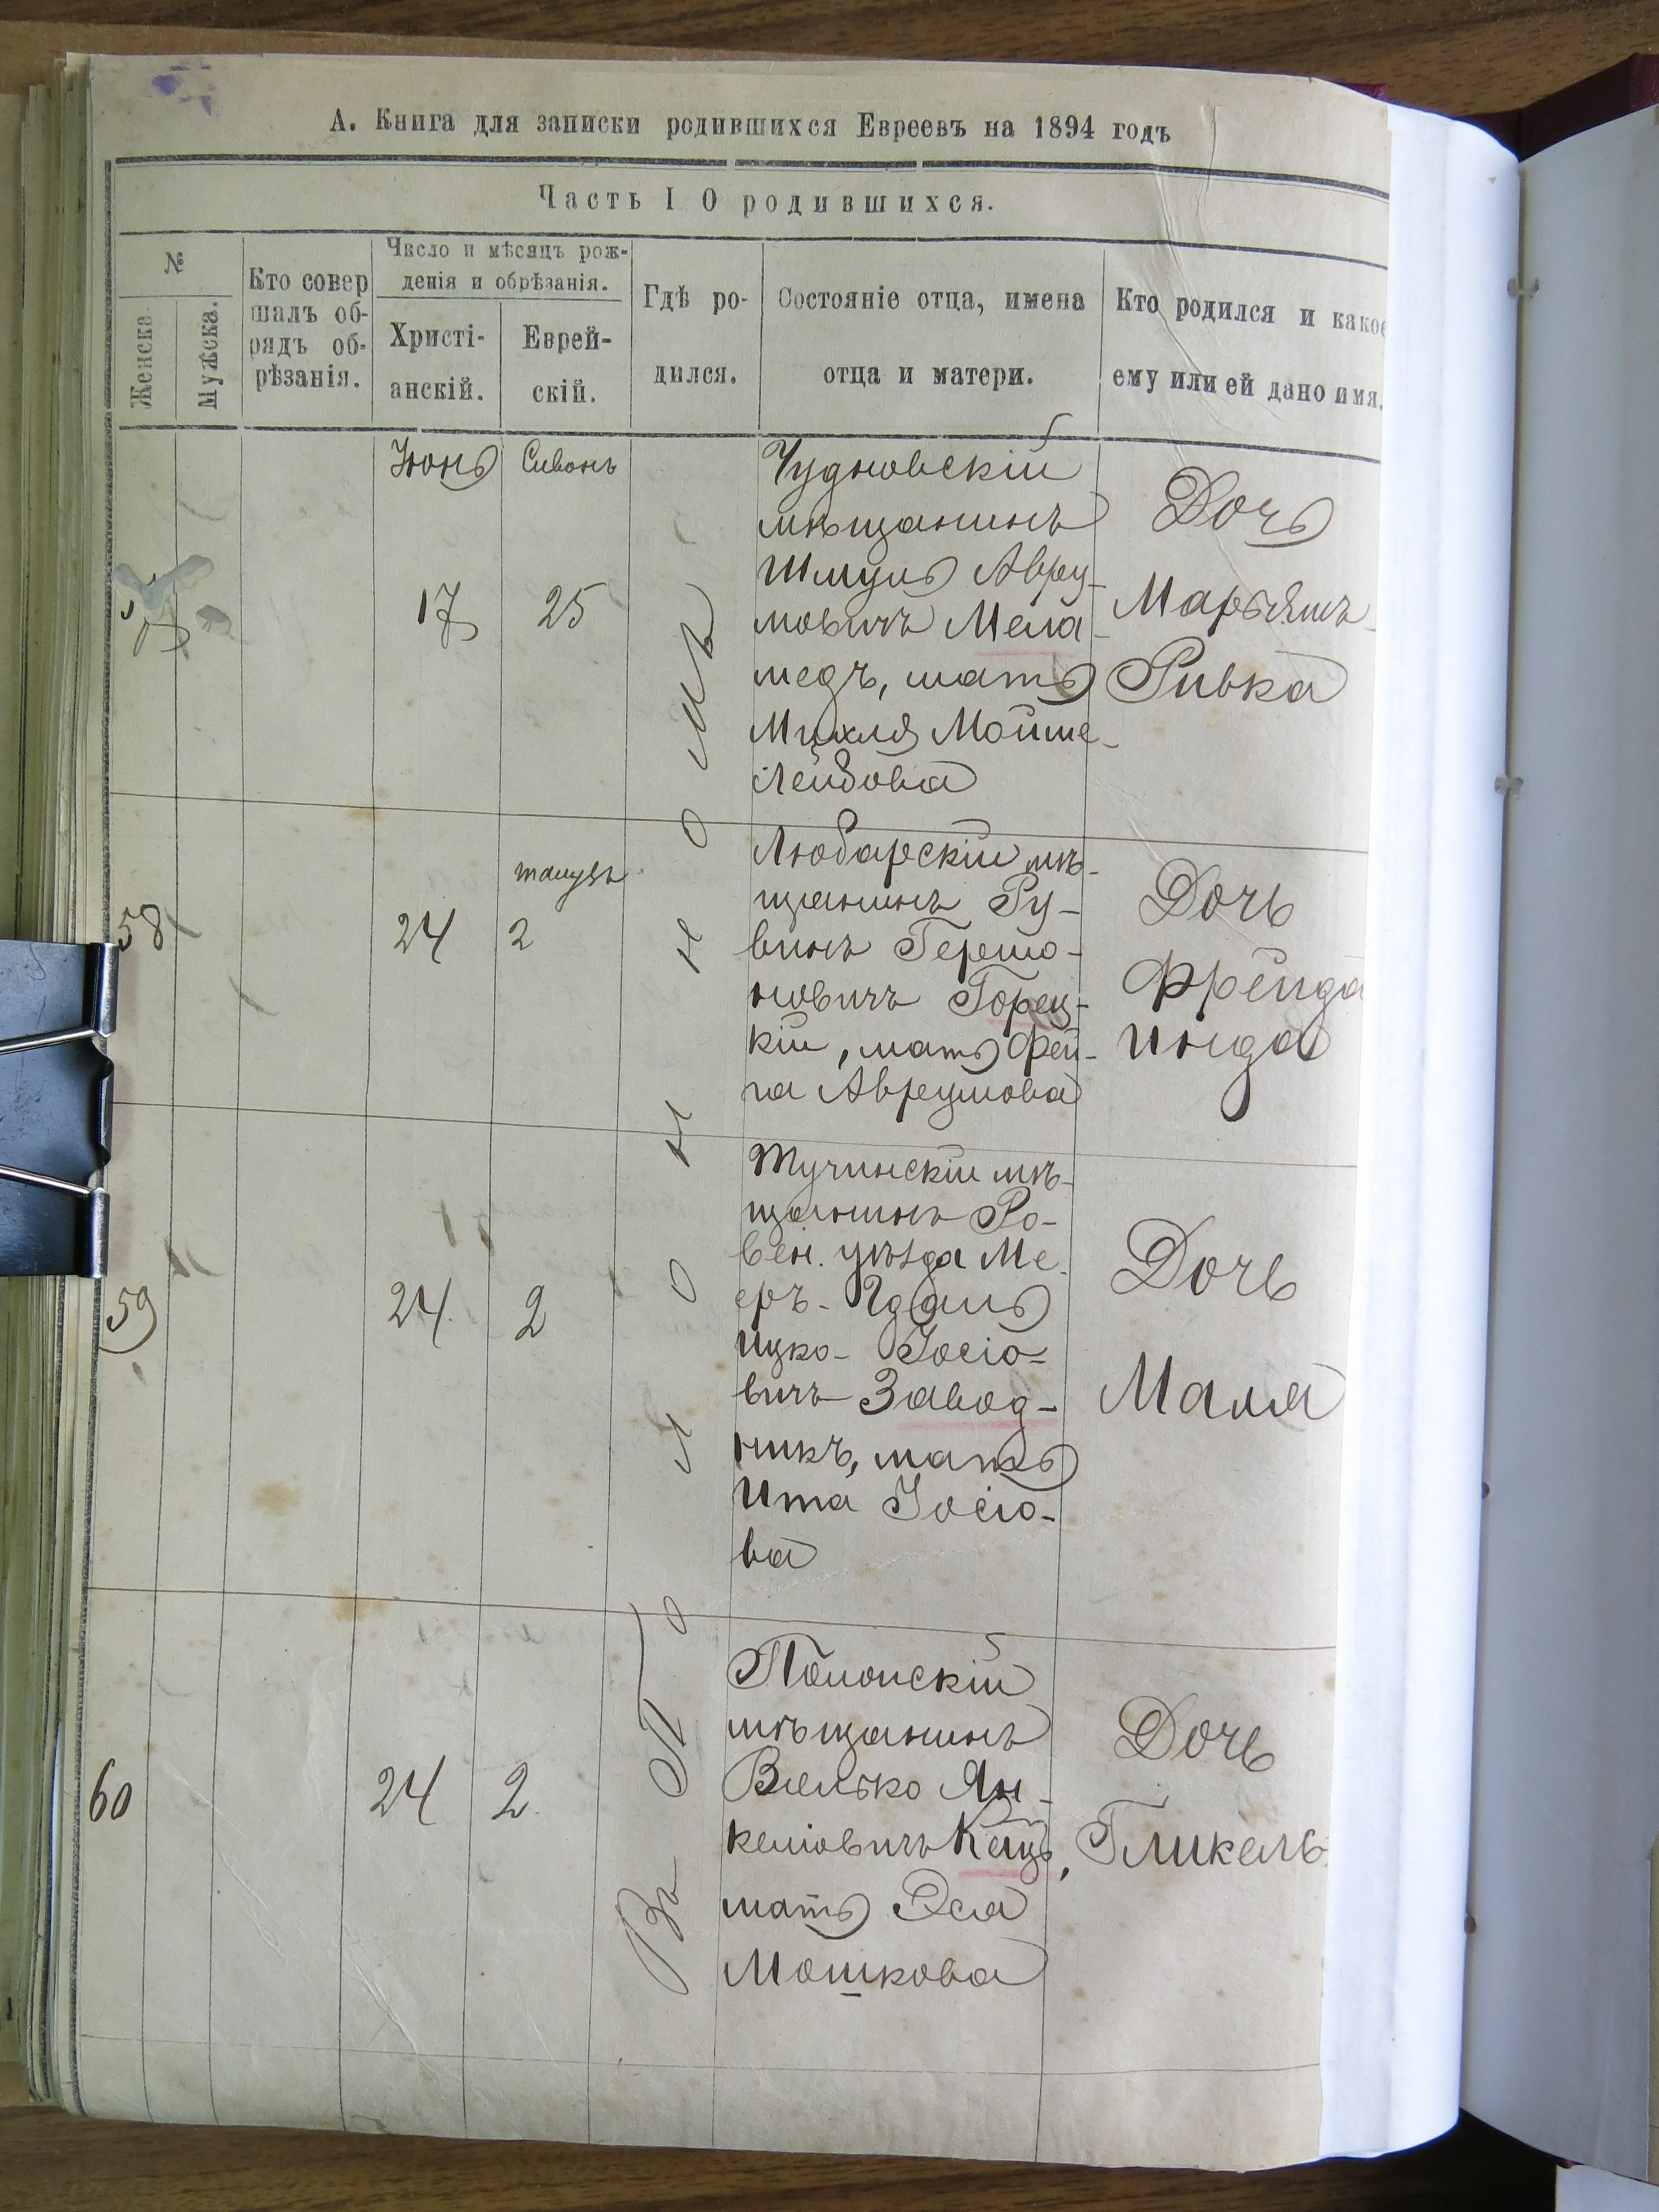 А. Книга для записки родившихся Евреевъ на 1894 годъ
Часть I О родившихся.
№
Женска.
Мужска.
Кто совер
шалъ об-
рядъ об-
рѣзанія.
Число и мѣсяцъ рож-
денія и обрѣзанія.
Христі-
анскій.
Еврей-
скій.
Гдѣ ро-
дился.
Состояніе отца, имена
отца и матери.
Кто родился и какое
ему или ей дано имя.
Въ Полонномъ
Іюнь
Сивонъ
17
25
Чудновскій
мѣщанинъ
Шмуль Авру-
мовичъ Мела-
медъ, мать
Михля Мойше-
Лейбова
Дочь
Марьямъ-
Ривка
58
24
тамузъ
2
Любарскій мѣ-
щанинъ Ру-
винъ Гершо-
новичъ Горец-
кій, мать Фей-
га Авреумова
Дочь
Фрейда
Инда
59
24.
2
Тучинскій мѣ-
щанинъ Ро-
вен. уѣзда Ме-
еръ-
Ицко- Іосіо-
вичъ Завод-
никъ, мать
Ита Іосіо-
ва
Дочь
Маля
60
24
2.
Полонскій
мѣщанинъ
Велько Ян-
келіовичъ Кацъ,
мать Эся
Мошкова
Дочь
Гликель